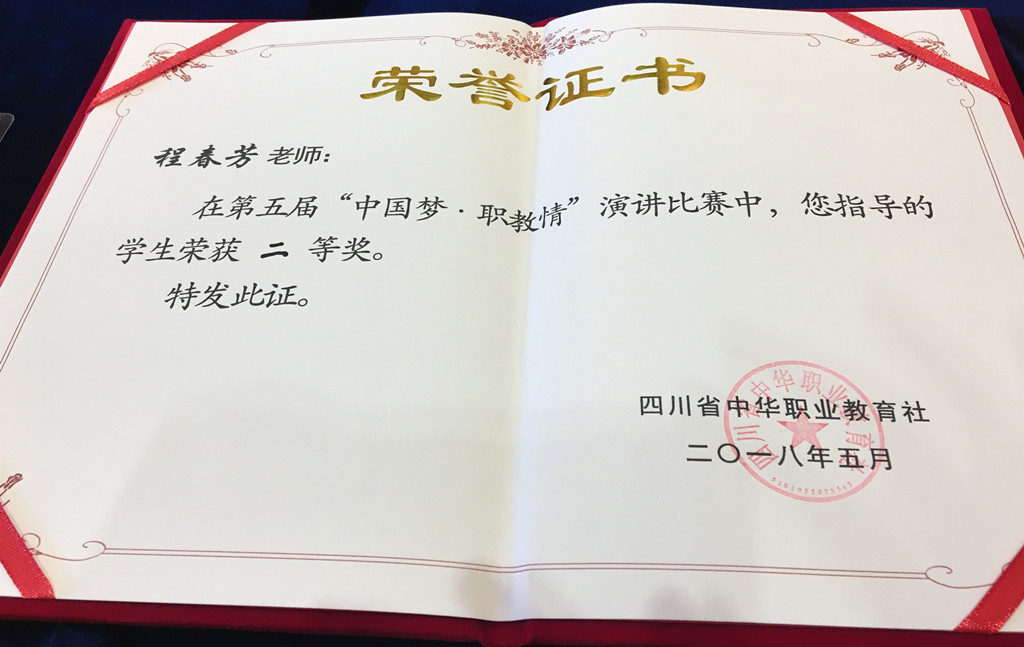 荣誉证书
程春芳老师：
在第五届“中国梦·职教情”演讲比赛中，您指导的
学生荣获 二 等奖。
特发此证。
四川省中华职业教育社
二〇一八年五月
四川省中华职业教育社